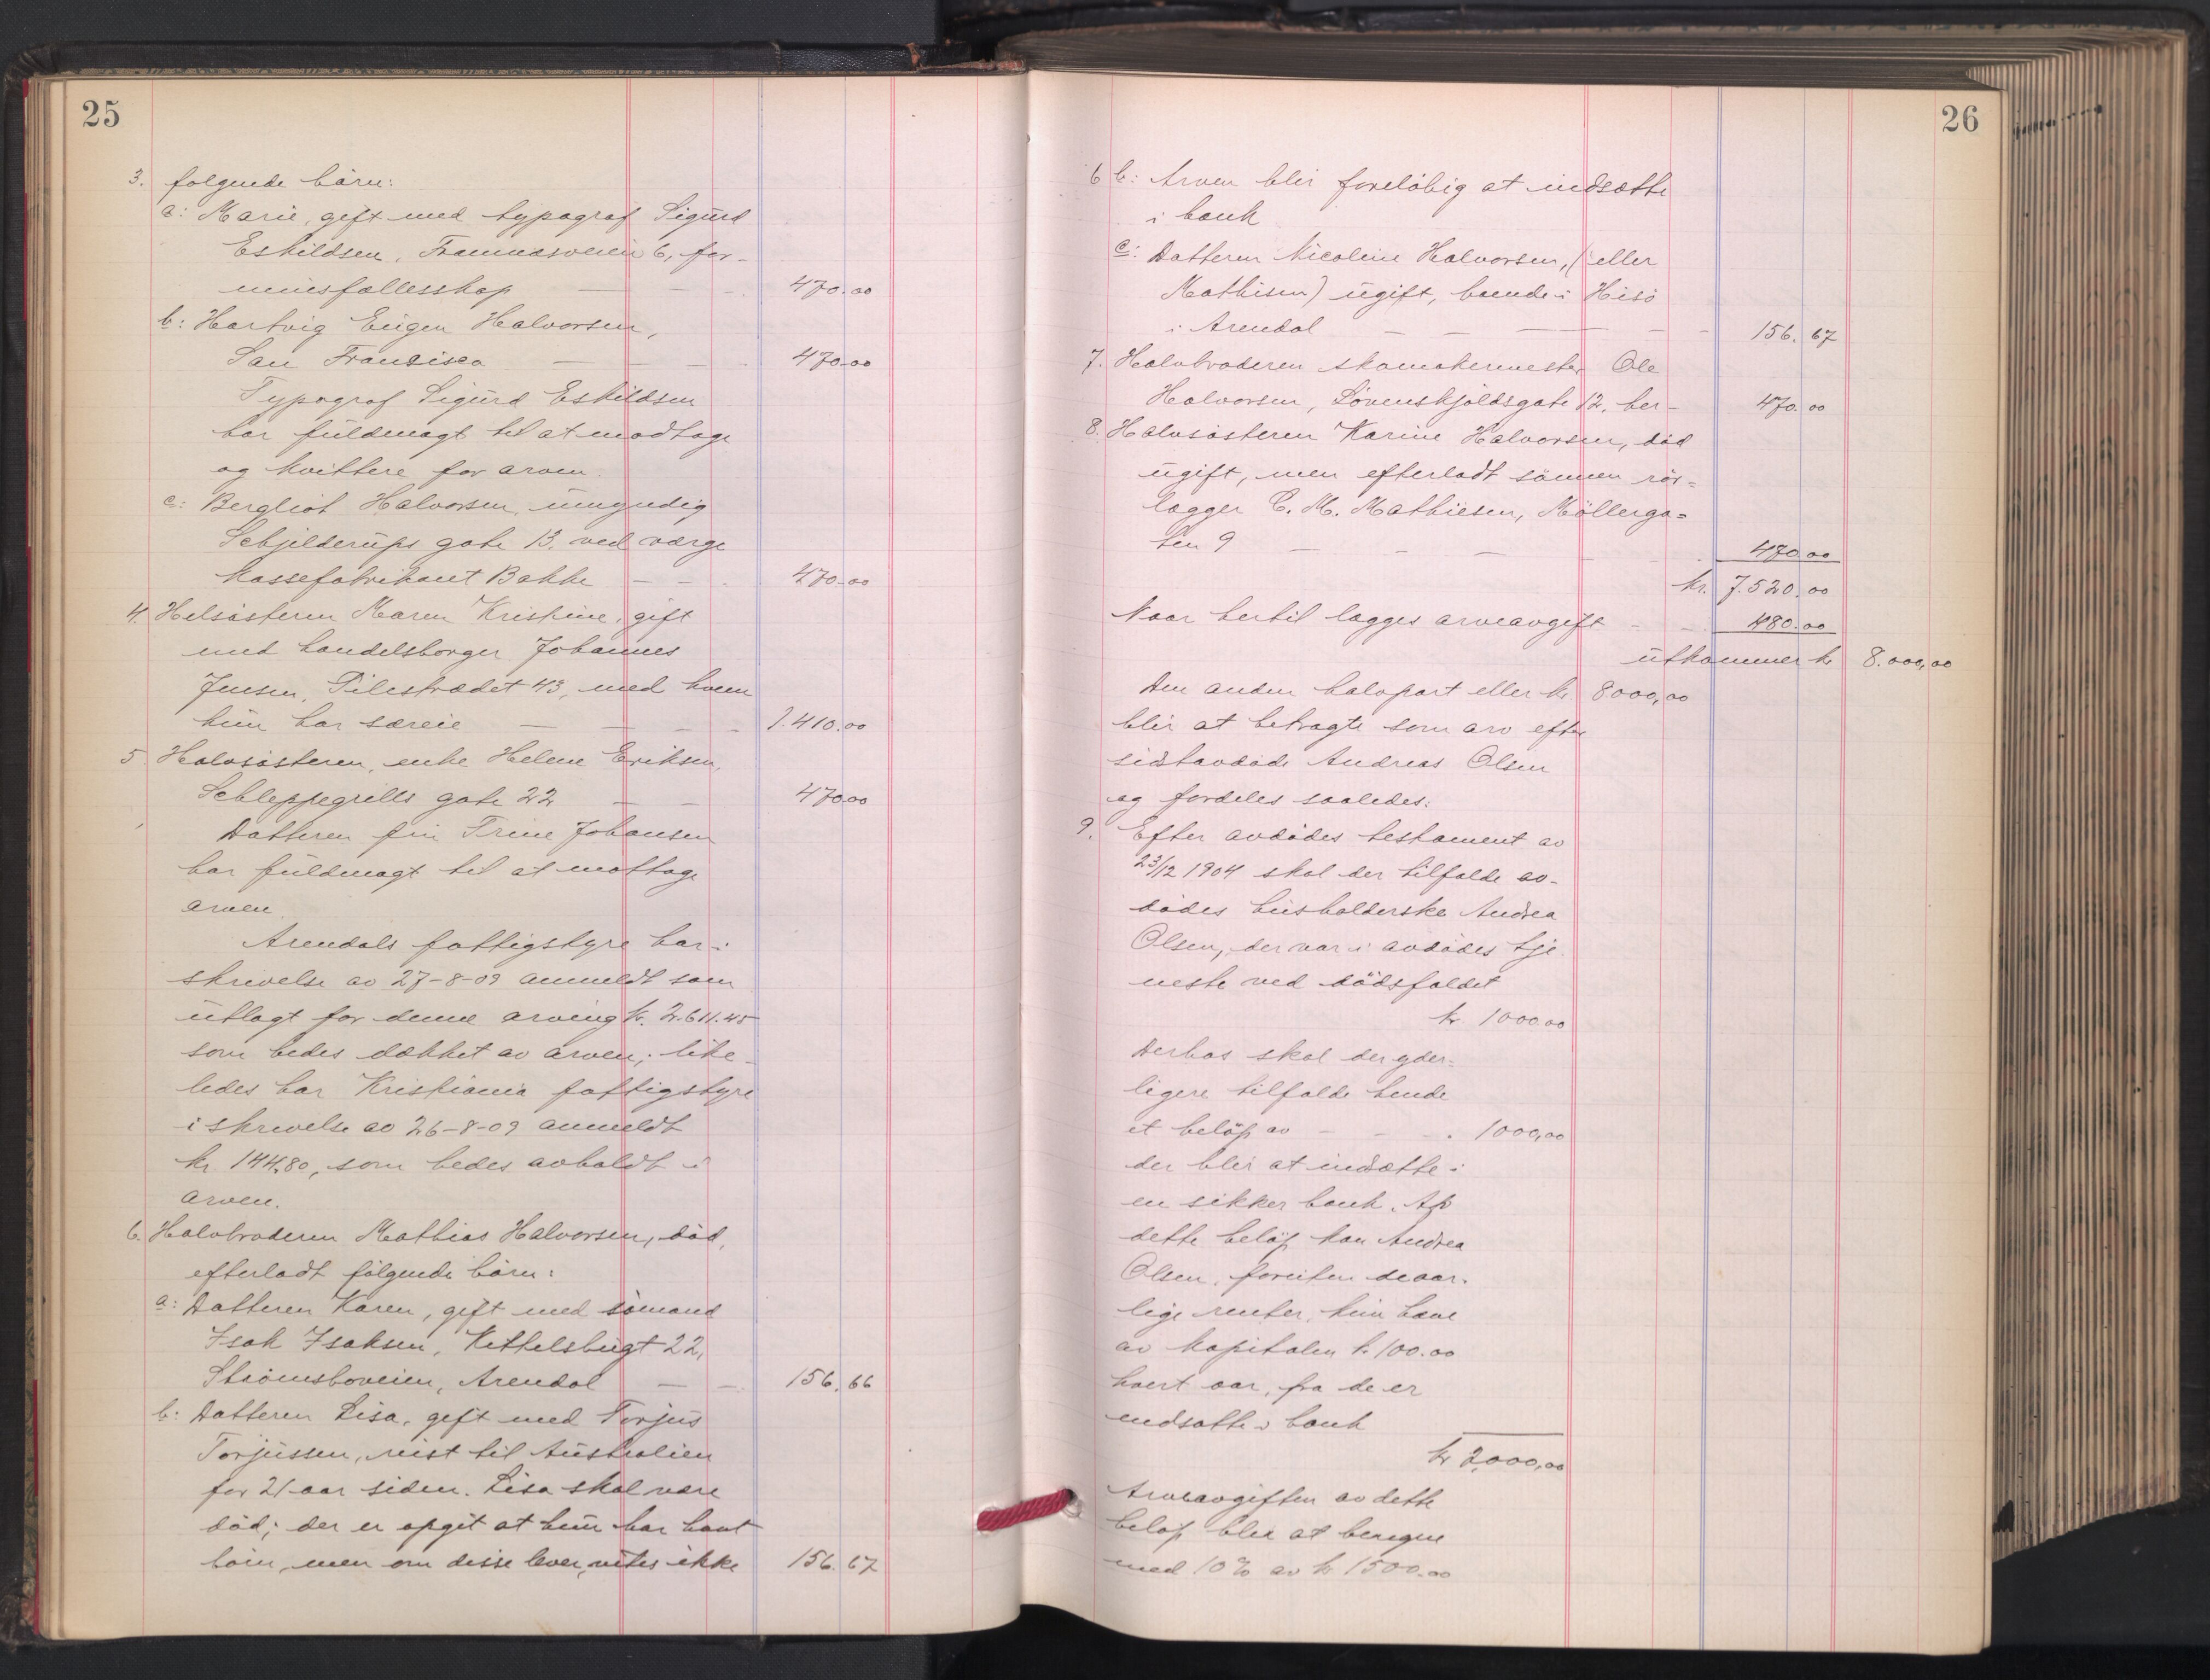 25
3. følgende børn:
a: Marie, gift med typograf Sigurd
Eskildsen, Framnæsveien 6, for-
muesfællesskap — — — 470.00
b: Hartvig Eugen Halvorsen,
San Francisco — — — 470.00
Typograf Sigurd Eskildsen
har fuldmagt til at modtage
og kvittere for arven.
c: Bergliot Halvorsen, umyndig
Schjelderups gate 13, ved værge
kassefabrikant Bakke — — . 470.00
4. Helsøsteren Maren Kristine, gift
med handelsborger Johannes
Jensen, Pilestrædet 43, med hvem
hun har særeie — — — — 1.410.00
5. Halvsøsteren, enke Helene Eriksen,
Schleppegrells gate 22 — — 470.00
Datteren fru Trine Johansen
har fuldmagt til at mottage
arven.
Arendals fattigstyre har i
skrivelse av 27-8-09 anmeldt som
utlagt for denne arving kr. 2.611.45
som bedes dækket av arven; like-
ledes har Kristiania fattigstyre
i skrivelse av 26-8-09 anmeldt
kr 144.80, som bedes avholdt i
arven.
6. Halvbroderen Mathias Halvorsen, død,
efterladt følgende børn:
a: Datteren Karen, gift med sømand
Isak Isaksen, Kittelsbugt 22,
Strømsboveien, Arendal — — 156.66
b: Datteren Lisa, gift med Torjus
Torjussen, reist til Australien
for 21 aar siden. Lisa skal være
død; der er opgit at hun har havt
børn, men om disse lever, vites ikke 156.67
26
6 b: Arven blir foreløbig at indsætte
i bank
c: Datteren Nicoline Halvorsen, (eller
Mathisen) ugift, boende i Hisø
i Arendal — — — — — 156.67
7. Halvbroderen skomakermester Ole
Halvorsen, Løvenskjoldsgate 12, her- 470.00
8. Halvsøsteren Karine Halvorsen, død
ugift, men efterladt sønnen rør=
lægger C. M. Mathiesen, Møllerga=
ten 9 — — — 470.00
kr. 7.520.00
Naar hertil lægges arveavgift - — 480.00
utkommer kr 8.000,00
Den anden halvpart eller kr 8000,00
blir at betragte som arv efter
sidstavdøde Andreas Olsen
og fordeles saaledes:
9. Efter avdødes testament av
23/12 1904 skal der tilfalde av-
dødes husholderske Andrea
Olsen, der var i avdødes tje-
neste ved dødsfaldet
kr 1000.00
Derhos skal der yder=
ligere tilfalde hende
et beløp av — - - . 1000,00
der blir at indsætte i
en sikker bank. Av
dette beløp kan Andrea
Olsen, foruten de aar-
lige renter, kun hæve
av kapitalen kr. 100.00
hvert aar, fra de er
indsatte i bank
kr 2,000,00
Arveavgiften av dette
beløp blir at beregne
med 10% av kr 1500.00